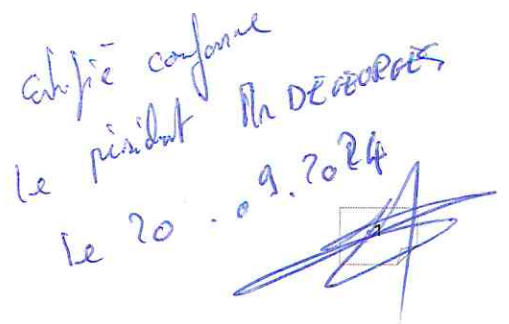 Certifié conforme
le président Mr DEGEORGES
le 20.09.2024
1